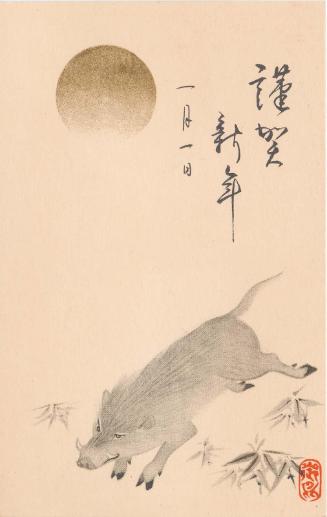 謹賀
新年
一月一日